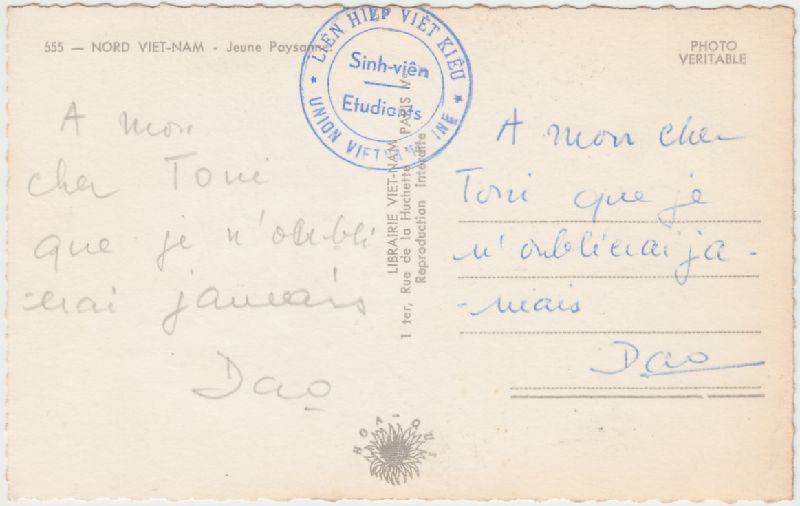 555 — NORD VIET-NAM - Jeune Paysanne.
LIÊN HIỆP VIỆT KIỀU
Sinh-viên
Etudiants
UNION VIETNAMIENNE
PHOTO
VERITABLE
A mon
cher Toni
que je n'oubli
-erai jamais
Dao
LIBRAIRIE VIET-NAM PARIS Ve
1 ter, Rue de la Huchette
Reproduction Interdite
A mon cher
Toni que je
n'oublierai ja-
-mais
Dao
HOA QUI